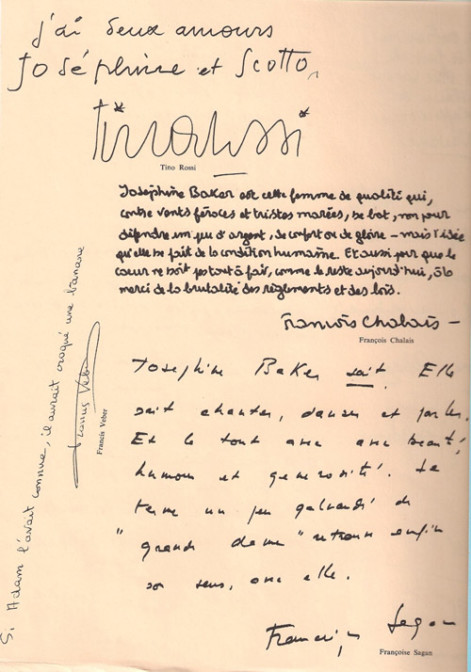 j'ai deux amours
Joséphine et Scotto,
Tino Rossi
Tito Romi
Joséphine Baker est cette femme de qualité qui,
contre vents féroces et tristes marées, se bat, non pour
défendre un peu d'argent, de confort ou de gloire – mais l'idée
qu'elle se fait de la condition humaine. Et aussi pour que le
cœur ne soit pas tout à fait, comme le reste aujourd'hui, à la
merci de la brutalité des règlements et des lois.
François Chalais –
François Chalais
Joséphine Baker sait. Elle
sait chanter, danser et parler.
Et le tout avec beauté,
humour et générosité. Le
terme un peu galvaudé de
"grande dame" retrouve enfin
son sens, avec elle.
Françoise Sagan
Françoise Sagan
Si Adam l'avait connue, il aurait croqué une banane
Francis Veber
Francis Veber